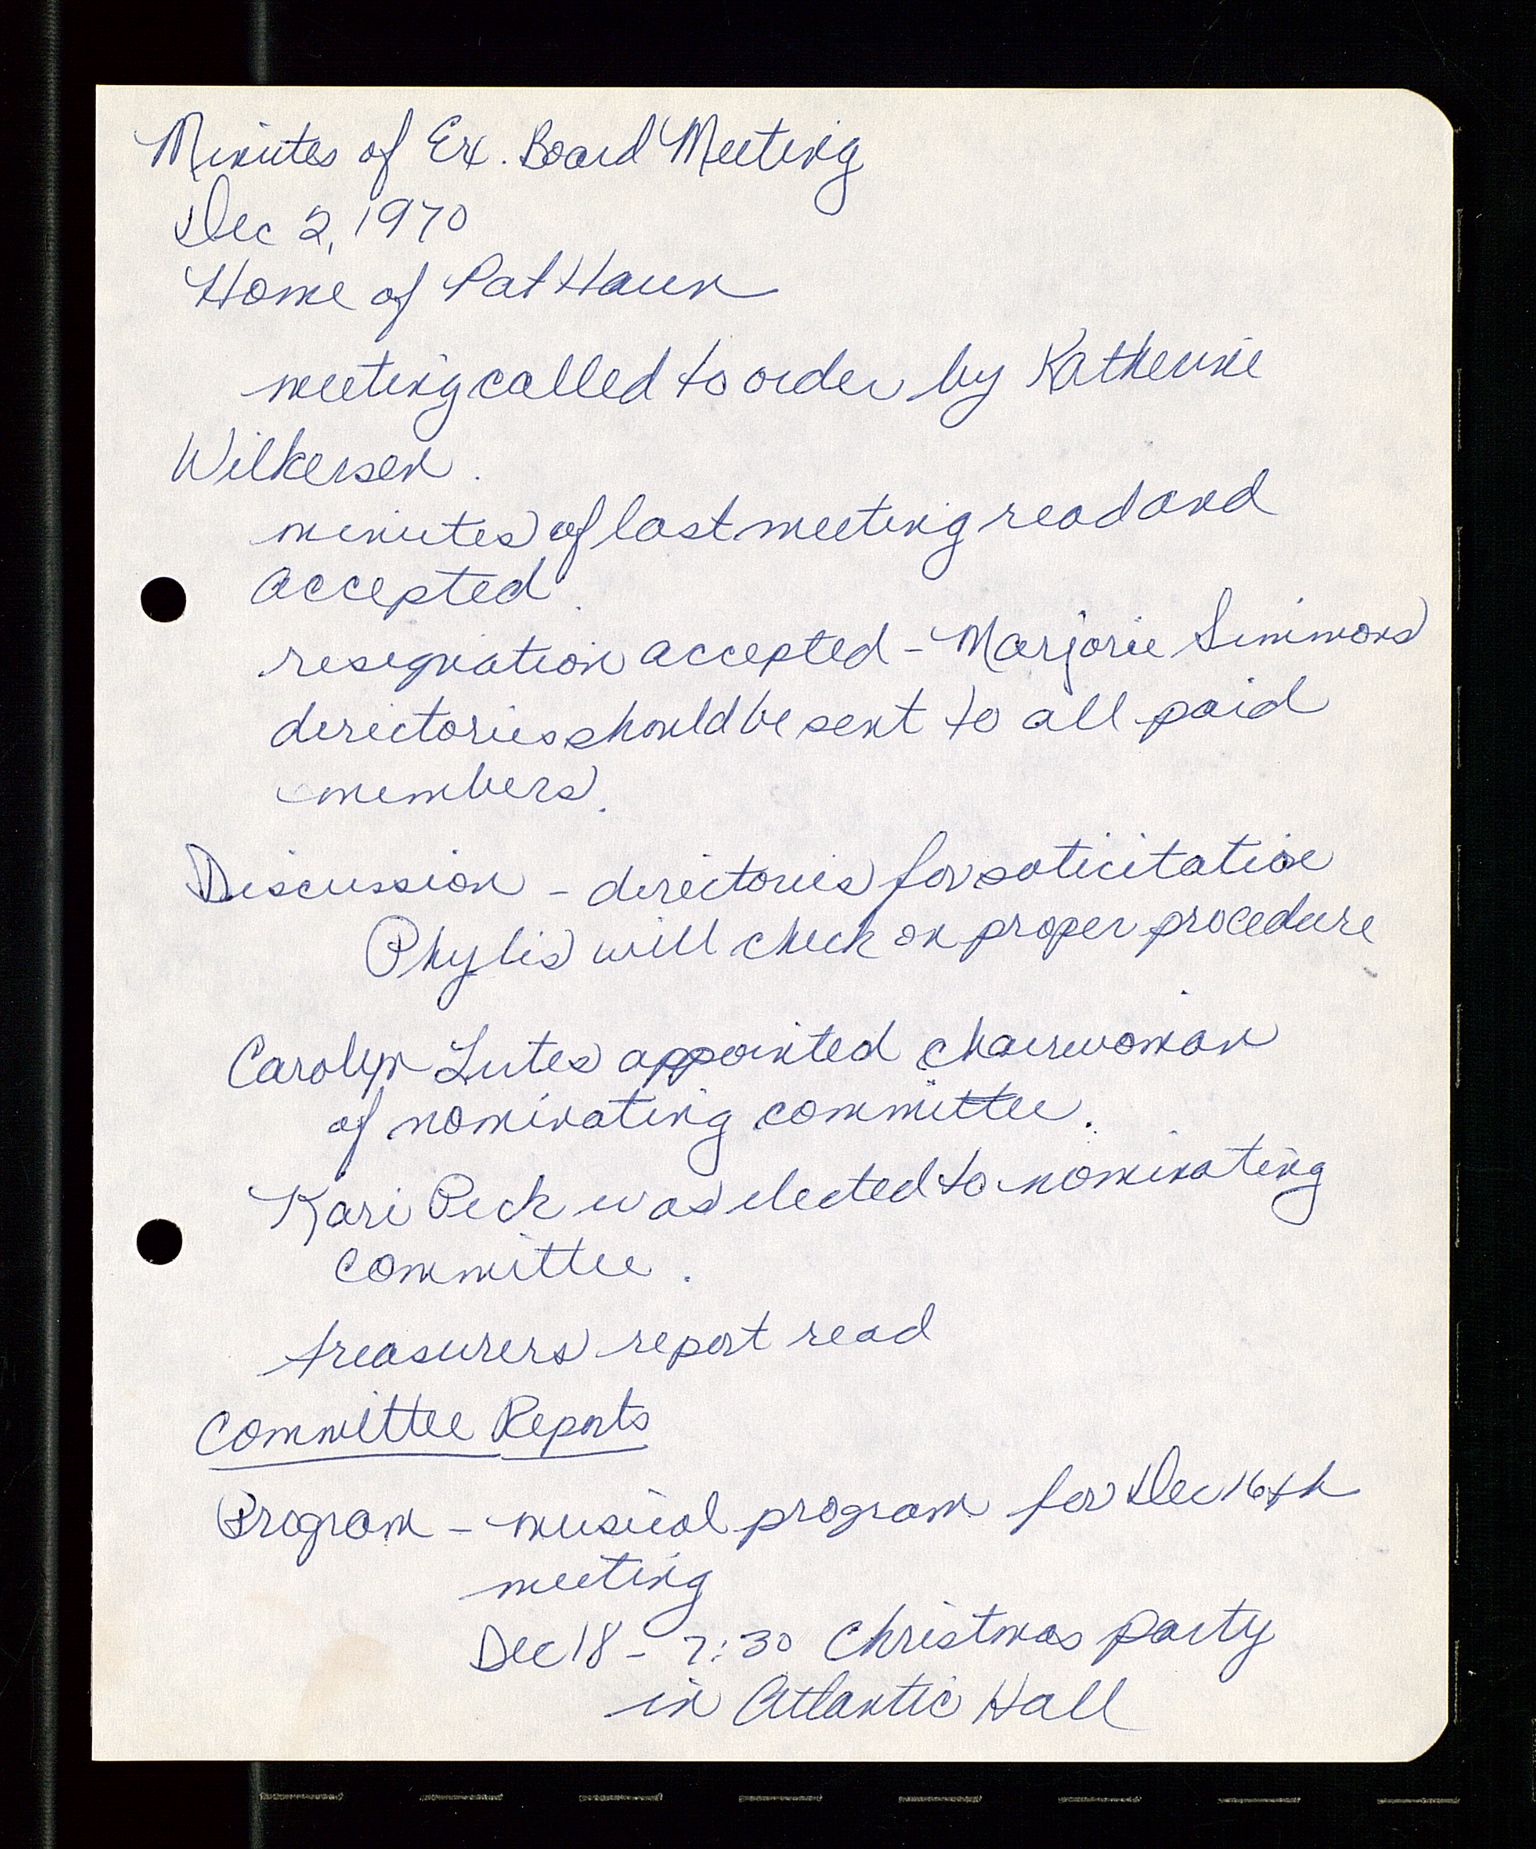 Minutes of Ex. Board Meeting
Dec 2, 1970
Home of Pat Haun
meeting called to order by Katherine
Wilkersen.
minutes of last meeting read and
accepted.
resignation accepted - Marjorie Simmons
directories should be sent to all paid
members.
Discussion - directories for soticitation
Phylis will check on proper procedure
Carolyn Lutes appointed chairwoman
of nominating committee.
Kari Peck was elected to nominating
committee.
treasurers report read
Committee Reports
Program - musical program for Dec 16th
meeting
Dec 18 - 7:30 Christmas party
in Atlantic Hall